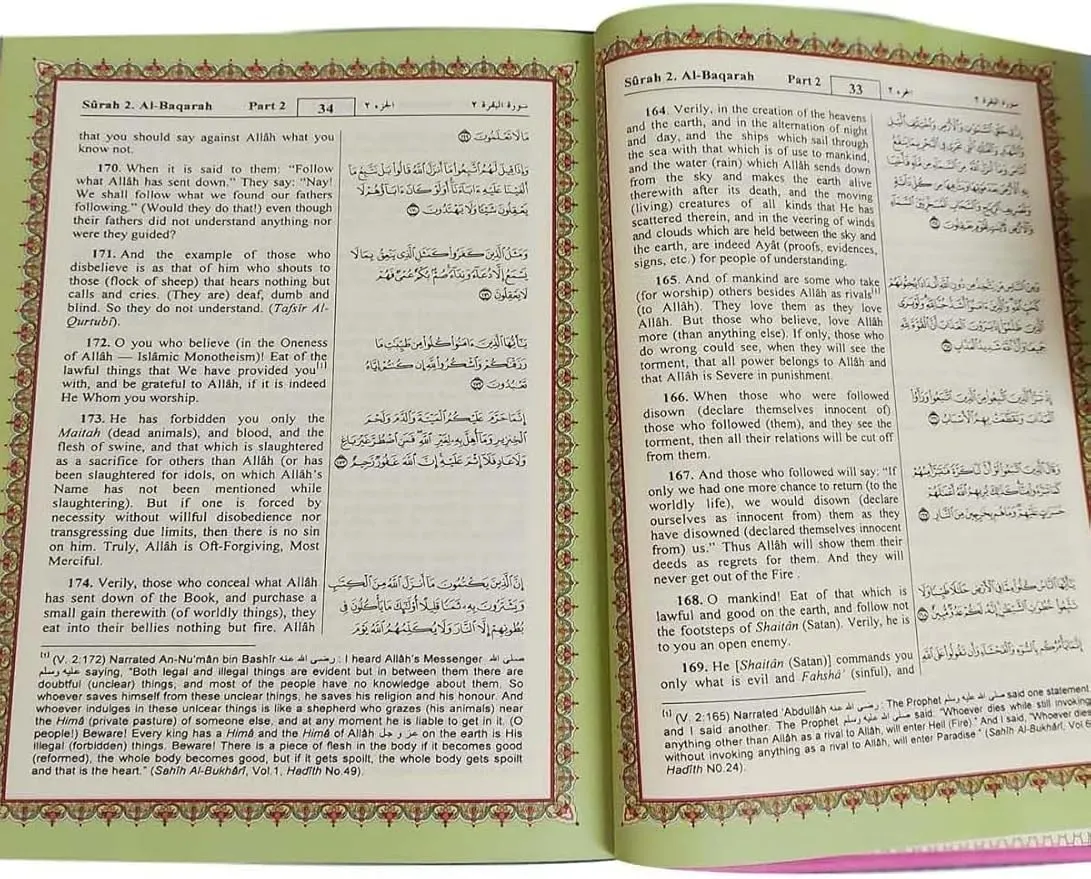 Sûrah 2. Al-Baqarah Part 2 33 الجزء ٢ سورة البقرة ٢
164. Verily, in the creation of the heavens
and the earth, and in the alternation of night
and day, and the ships which sail through
the sea with that which is of use to mankind,
and the water (rain) which Allâh sends down
from the sky and makes the earth alive
therewith after its death, and the moving
(living) creatures of all kinds that He has
scattered therein, and in the veering of winds
and clouds which are held between the sky and
the earth, are indeed Ayât (proofs, evidences,
signs, etc.) for people of understanding.
165. And of mankind are some who take
(for worship) others besides Allâh as rivals[1]
(to Allâh). They love them as they love
Allâh. But those who believe, love Allâh
more (than anything else). If only, those who
do wrong could see, when they will see the
torment, that all power belongs to Allâh and
that Allâh is Severe in punishment.
166. When those who were followed
disown (declare themselves innocent of)
those who followed (them), and they see the
torment, then all their relations will be cut off
from them.
167. And those who followed will say: “If
only we had one more chance to return (to the
worldly life), we would disown (declare
ourselves as innocent from) them as they
have disowned (declared themselves innocent
from) us.” Thus Allâh will show them their
deeds as regrets for them. And they will
never get out of the Fire .
168. O mankind! Eat of that which is
lawful and good on the earth, and follow not
the footsteps of Shaitân (Satan). Verily, he is
to you an open enemy.
169. He [Shaitân (Satan)] commands you
only what is evil and Fahshâ’ (sinful), and
إِنَّ فِي خَلْقِ السَّمَوَاتِ وَالْأَرْضِ وَاخْتِلَافِ الَّيْلِ
وَالنَّهَارِ وَالْفُلْكِ الَّتِي تَجْرِي فِي الْبَحْرِ بِمَا يَنفَعُ
[1] (V. 2:165) Narrated ‘Abdullâh رضي الله عنه : The Prophet صلى الله عليه وسلم said one statement
and I said another. The Prophet صلى الله عليه وسلم said. “Whoever dies while still invoking
anything other than Allâh as a rival to Allâh, will enter Hell (Fire).” And I said, “Whoever dies
without invoking anything as a rival to Allâh, will enter Paradise” (Sahîh Al-Bukhârî, Vol.
Hadîth N0.24).
Sûrah 2. Al-Baqarah Part 2 34 الجزء ٢ سورة البقرة ٢
that you should say against Allâh what you
know not.
170. When it is said to them: “Follow
what Allâh has sent down.” They say: “Nay!
We shall follow what we found our fathers
following.” (Would they do that!) even though
their fathers did not understand anything nor
were they guided?
171. And the example of those who
disbelieve is as that of him who shouts to
those (flock of sheep) that hears nothing but
calls and cries. (They are) deaf, dumb and
blind. So they do not understand. (Tafsîr Al-
Qurtubî).
172. O you who believe (in the Oneness
of Allâh — Islâmic Monotheism)! Eat of the
lawful things that We have provided you[1]
with, and be grateful to Allâh, if it is indeed
He Whom you worship.
173. He has forbidden you only the
Maitah (dead animals), and blood, and the
flesh of swine, and that which is slaughtered
as a sacrifice for others than Allâh (or has
been slaughtered for idols, on which Allâh’s
Name has not been mentioned while
slaughtering). But if one is forced by
necessity without willful disobedience nor
transgressing due limits, then there is no sin
on him. Truly, Allâh is Oft-Forgiving, Most
Merciful.
174. Verily, those who conceal what Allâh
has sent down of the Book, and purchase a
small gain therewith (of worldly things), they
eat into their bellies nothing but fire. Allâh
مَا لَا تَعْلَمُونَ ١٦٩
وَإِذَا قِيلَ لَهُمُ اتَّبِعُوا مَا أَنزَلَ اللَّهُ قَالُوا بَلْ نَتَّبِعُ مَا
أَلْفَيْنَا عَلَيْهِ ءَابَاءَنَا أَوَلَوْ كَانَ ءَابَاؤُهُمْ لَا
يَعْقِلُونَ شَيْئًا وَلَا يَهْتَدُونَ ١٧٠
وَمَثَلُ الَّذِينَ كَفَرُوا كَمَثَلِ الَّذِي يَنْعِقُ بِمَا لَا
يَسْمَعُ إِلَّا دُعَاءً وَنِدَاءً صُمٌّ بُكْمٌ عُمْيٌ فَهُمْ
لَا يَعْقِلُونَ ١٧١
يَا أَيُّهَا الَّذِينَ ءَامَنُوا كُلُوا مِن طَيِّبَتِ مَا
رَزَقْنَكُمْ وَاشْكُرُوا لِلَّهِ إِن كُنتُمْ إِيَّاهُ
تَعْبُدُونَ ١٧٢
إِنَّمَا حَرَّمَ عَلَيْكُمُ الْمَيْتَةَ وَالدَّمَ وَلَحْمَ
الْخِنزِيرِ وَمَا أُهِلَّ بِهِ لِغَيْرِ اللَّهِ فَمَنِ اضْطُرَّ غَيْرَ بَاغٍ
وَلَا عَادٍ فَلَا إِثْمَ عَلَيْهِ إِنَّ اللَّهَ غَفُورٌ رَّحِيمٌ ١٧٣
إِنَّ الَّذِينَ يَكْتُمُونَ مَا أَنزَلَ اللَّهُ مِنَ الْكِتَبِ
وَيَشْتَرُونَ بِهِ ثَمَنًا قَلِيلًا أُولَئِكَ مَا يَأْكُلُونَ فِي
بُطُونِهِمْ إِلَّا النَّارَ وَلَا يُكَلِّمُهُمُ اللَّهُ يَوْمَ
[1] (V. 2:172) Narrated An-Nu‘mân bin Bashîr رضي الله عنه : I heard Allâh’s Messenger صلى الله
عليه وسلم saying, “Both legal and illegal things are evident but in between them there are
doubtful (unclear) things, and most of the people have no knowledge about them. So
whoever saves himself from these unclear things, he saves his religion and his honour. And
whoever indulges in these unlcear things is like a shepherd who grazes (his animals) near
the Himâ (private pasture) of someone else, and at any moment he is liable to get in it. (O
people!) Beware! Every king has a Himâ and the Himâ of Allâh عز و جل on the earth is His
illegal (forbidden) things. Beware! There is a piece of flesh in the body if it becomes good
(reformed), the whole body becomes good, but if it gets spoilt, the whole body gets spoilt
and that is the heart.” (Sahîh Al-Bukhârî, Vol.1, Hadîth No.49).